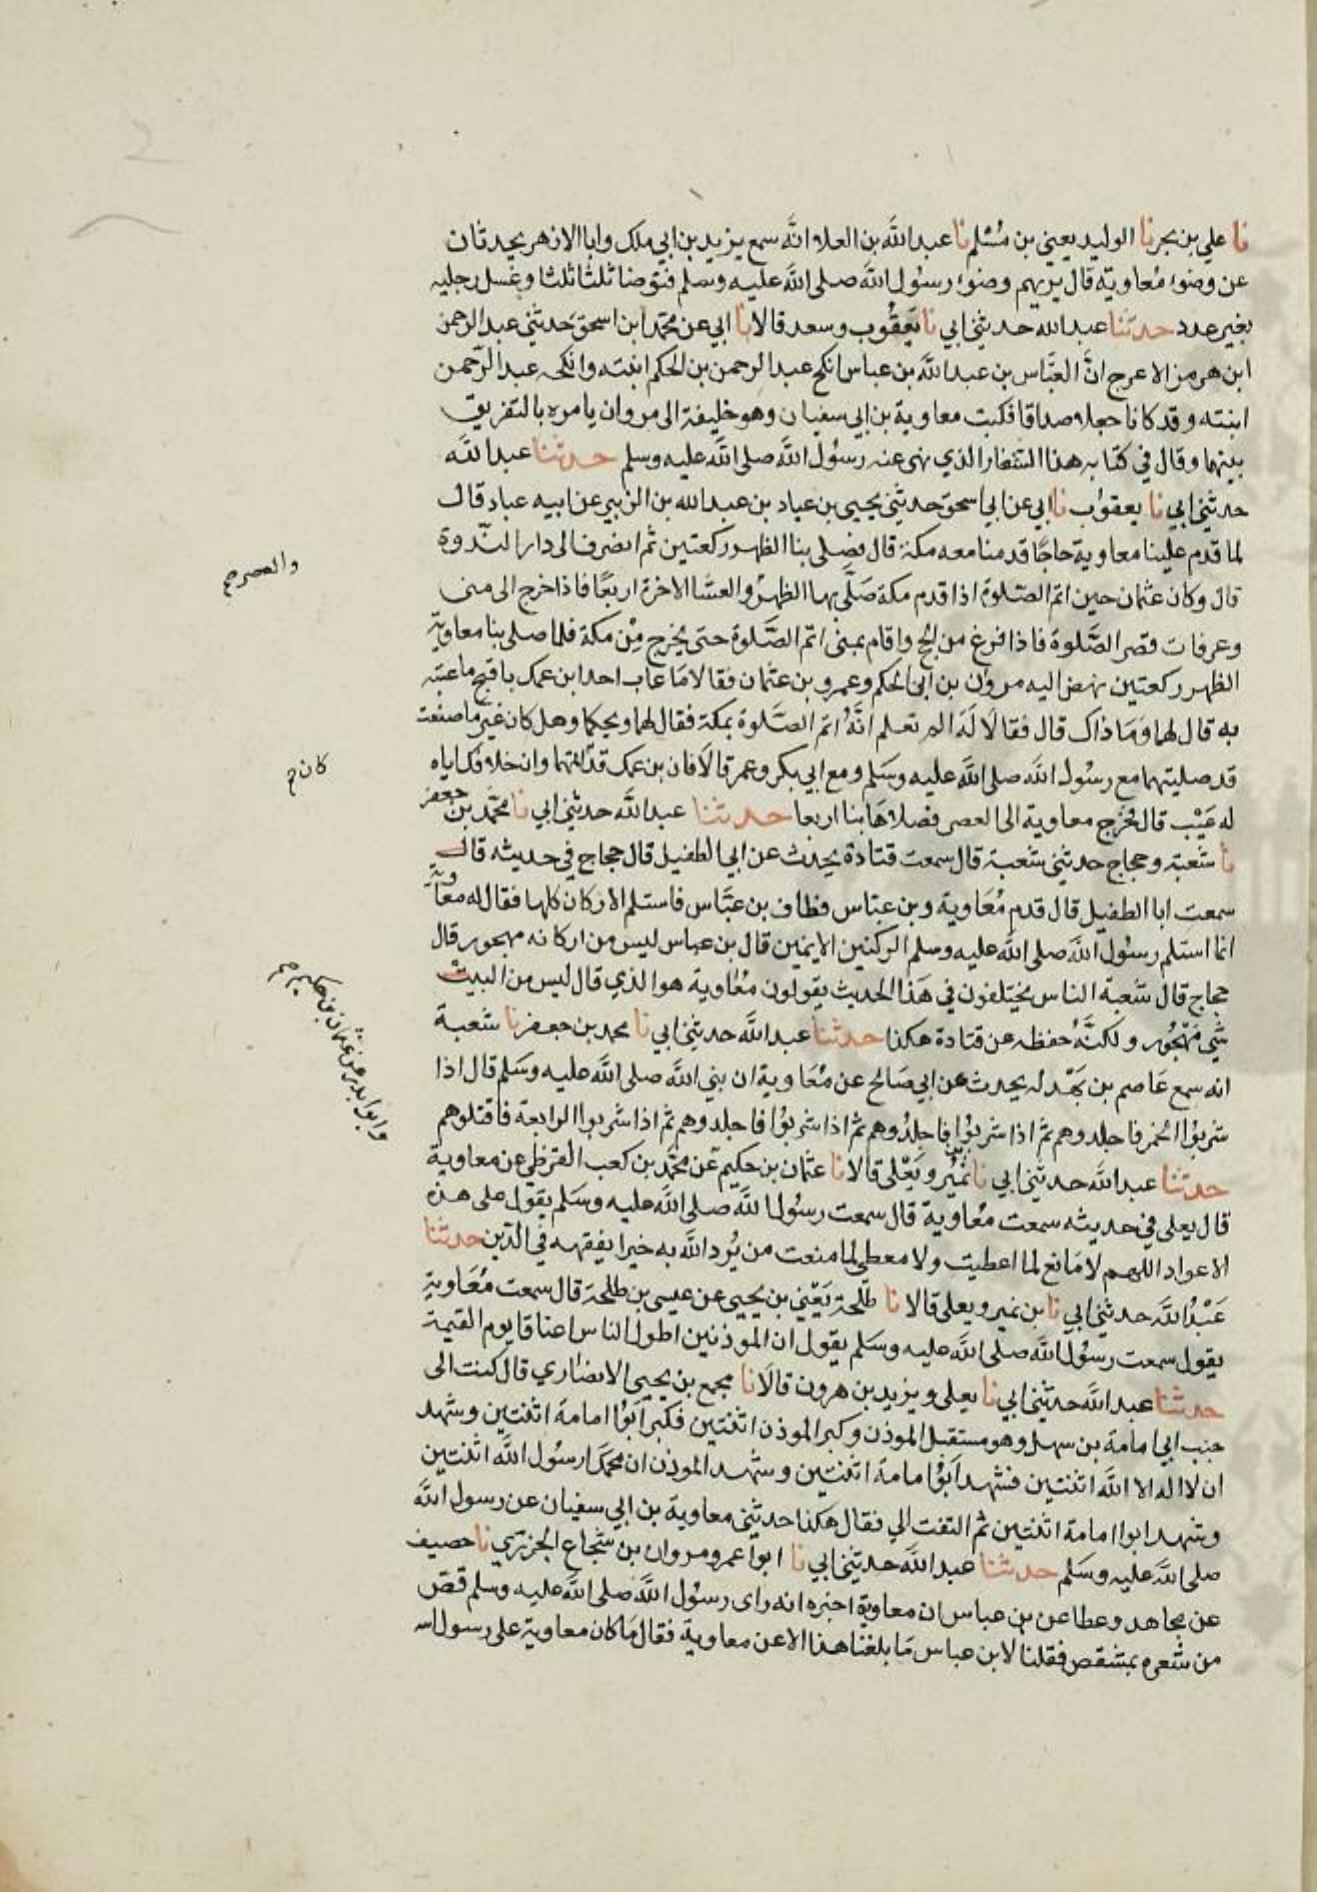 نا علي بن بحر نا الوليد يعني بن مسْلم نا عبد الله بن العلا انَّه سمع يزيد بن ابي ملك وابا الازهر يحدثان
عن وضوء مُعاوية قال يريهم وضوء رسُول الله صلى الله عليه وسلم فتوضا ثلثا ثلثا وغسل رجليه
بغير عدد حدثنا عبد الله حدثني ابي نا يَعقُوب وسعد قالا نا ابي عن محمد ابن اسحق حَدثني عبد الرحمن
ابن هرمز الاعرج انَّ العبَّاس بن عبد الله بن عباس انكح عبد الرحمن بن الحكم ابنته وانكحه عبد الرَّحمن
ابنته وقد كانا جعلاه صداقا فكتب معاوية بن ابي سفيان وهو خليفة الى مروان يامره بالتفريق
بينهما وقال في كتابه هذا الشغار الذي نهى عنه رسُول الله صلى الله عليه وسلم حدثنا عبد الله
حدثني ابي نا يعقوب نا ابي عن ابي اسحق حدثني يحيى بن عباد بن عبد الله بن الزبير عن ابيه عباد قال
لما قدم علينا معاوية حاجًا قدمنا معه مكة قال فصلى بنا الظهر ركعتين ثم انصرف الى دار النَّدوة
قال وكان عثمان حين اتم الصَّلوة اذا قدم مكة صَلَّى بها الظهرْ والعشا الاخرة اربعًا فاذا خرج الى منى
والعصر صح
وعرفات قصر الصَّلوة فاذا فرغ من الحج واقام بمنى اتم الصَّلوة حتى يخرج مِنْ مكة فلما صلى بنا معاوية
الظهر ركعتين نهض اليه مروان بن ابي الحكم وعمرو بن عثمان فقالا مَا عاب احد ابن عمك باقبح ما عبته
به قال لهما ومَا ذاك قال فقالا لَهَ الم تعلم انَّهُ اتم الصَّلوة بمكة فقال لهما ويحكما وهل كان غير ما صنعت
قد صليتهما مع رسُول الله صلى الله عليه وسَلم ومع ابي بكر وعمر قالَا فان بن عمك قد اتمهما وان خلافك اياه
كان صح
له عَيْب قال فخرج معاوية الى العصر فصلاهَا بنا اربعا حدثنا عبد الله حدثني ابي نا محمَّد بن جعفر
نا شعبة وحجاج حدثني شعبة قال سمعت قتادة يحدث عن ابي الطفيل قال حجاج في حديثه قال
سمعت ابا الطفيل قال قدم مُعَاوية وبن عباس فطاف بن عبَّاس فاستلم الاركان كلها فقال له معاوية
انما استلم رسُول الله صلى الله عليه وسلم الركنين الايمنين قال بن عباس ليس من اركانه مهجور قال
حجاج قال شعبة الناس يختلفون في هَذا الحديث يقولون مُعَاوية هو الذي قال ليس من البيت
شي مَهْجُور ولكنَّهُ حفظه عن قتادة هكذا حدثنا عبد الله حدثني ابي نا محمد بن جعفر نا شعبة
انه سمع عَاصم بن بَهْدله يحدث عن ابي صَالح عن مُعَاوية ان نبي الله صلى الله عليه وسَلم قال اذا
شربوُا الخمر فاجلدوهم ثم اذا شربوُا فاجلدُوهم ثم اذا شربوُا فاجلدوهم ثم اذا شربوا الرابعة فاقتلوهم
حدثنا عبد الله حدثني ابي نا بن نُمير ويَعْلى قالا نا عثمان بن حكيم عن محمَّد بن كعب القرظي عن معاوية
وابو بدر عن عثمان بن حكيم صح
قال يعلى في حديثه سمعت مُعَاوية قال سمعت رسُول الله صلى الله عليه وسَلم يقول على هذه
الاعواد اللهم لا مَانع لما اعطيت ولا معطى لما منعت من يُرد الله به خيرا يفقهه في الدِّين حدثنا
عَبْدُ الله حدثني ابي نا بن نمير ويعلى قالا نا طلحة يَعْني بن يحيى عن عيسى بن طلحة قال سمعت مُعَاوية
يقول سمعت رسُول الله صلى الله عليه وسَلم يقول ان الموذنين اطول الناس اعناقا يوم القيمة
حدثنا عبد الله حدثني ابي نا يعلى ويزيد بن هرون قالَا نا مجمع بن يحيى الانصَاري قال كنت الى
جنب ابي امامة بن سهل وهو مستقبل الموذن وكبر الموذن اثنتين فكبر ابَوُا امامة اثنتين وشهد
ان لا اله الا الله اثنتين فشهد ابَوُا امامة اثنتين وشهد الموذن ان محمَّدا رسُول الله اثنتين
وشهد ابوا امامة اثنتين ثم التفت الي فقال هكذا حدثني معاوية بن ابي سفيان عن رسول الله
صلى الله عليه وسَلم حدثنا عبد الله حدثني ابي نا ابوا عمرو مروان بن شجاع الجزري نا خصيف
عن مجاهد وعطا عن بن عباس ان معاوية اخبره انه راى رسُول الله صلى الله عليه وسلم قصّ
من شعره بمشقص فقلنا لابن عباس مَا بلغنا هذا الا عن معاوية فقال مَا كان معاوية على رسول الله